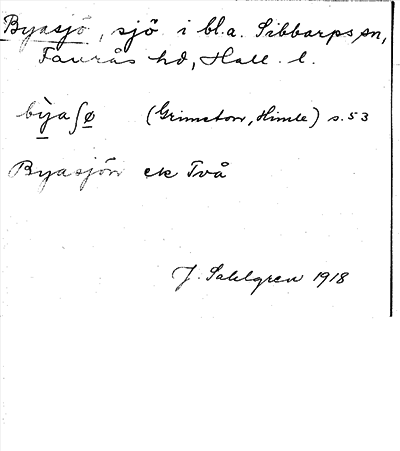 Byasjö, sjö i bl.a. Sibbarps sn,
Faurås hd, Hall. l.
bỳa∫ø (Grimeton, Himle) s. 53
Byasjön ek Två
J. Sahlgren 1918